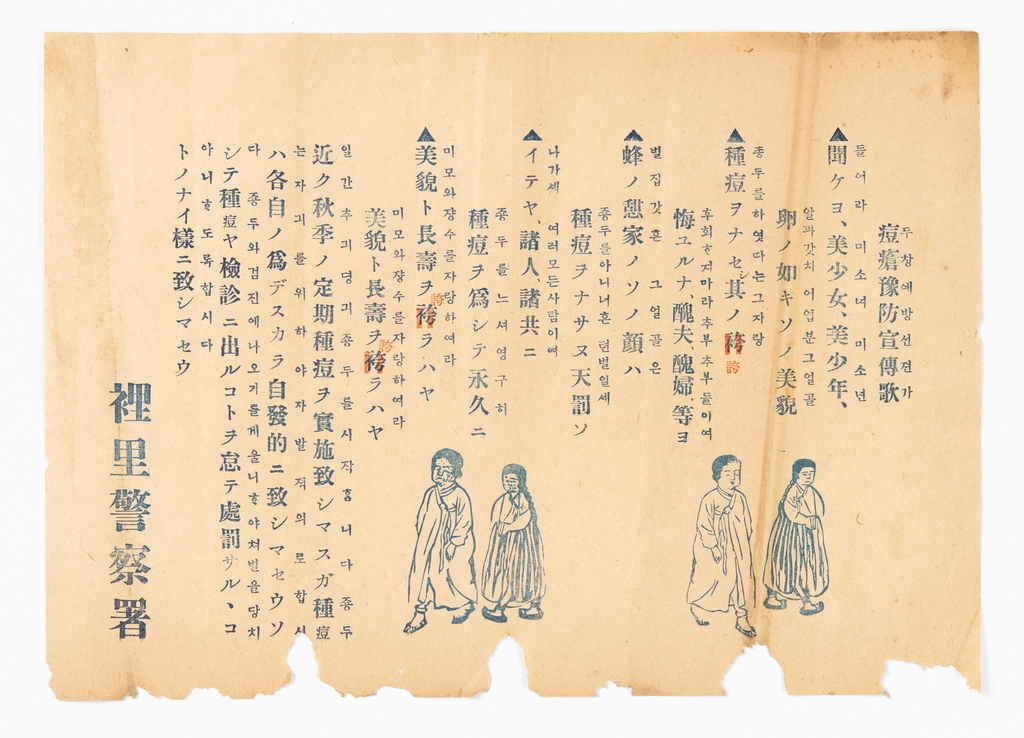 두창예방선젼가
痘瘡豫防宣傳歌
들어라 미소녀 미소년
▲聞ケヨ、美少女、美少年、
알과갓치 어엽분그얼골
卵ノ如キソノ美貌
종두를하엿다는그자랑
▲種痘ヲナセシ其ノ袴
誇
후회호지마라추부추부들이여
悔ユルナ、醜夫、醜婦、等ヨ
벌집갓흔 그얼골은
▲蜂ノ憩家ノソノ顔ハ
종두를아니너흔텬벌일세
種痘ヲナサヌ天罰ソ
나가세 여러모든사람이여
▲イテヤ、諸人、諸共ニ
종두를느셔영구히
種痘ヲ爲シテ永久ニ
미모와쟝수를자랑하여라
▲美貌ト長壽ヲ袴ラハヤ
誇
미모와쟝수를자랑하여라
美貌ト長壽ヲ袴ラハヤ
誇
일간추긔뎡긔종두를시작홈니다종두
近ク秋季ノ定期種痘ヲ實施致シマスガ種痘
는자긔를위하야자발적의로합시
ハ各自ノ爲デスカラ自發的ニ致シマセウソ
다 종두와검진에나오기를게울니호야쳐벌을당치
シテ種痘ヤ檢診ニ出ルコトヲ怠テ處罰サルヽコ
아니호도록합시다
トノナイ樣ニ致シマセウ
裡里警察署